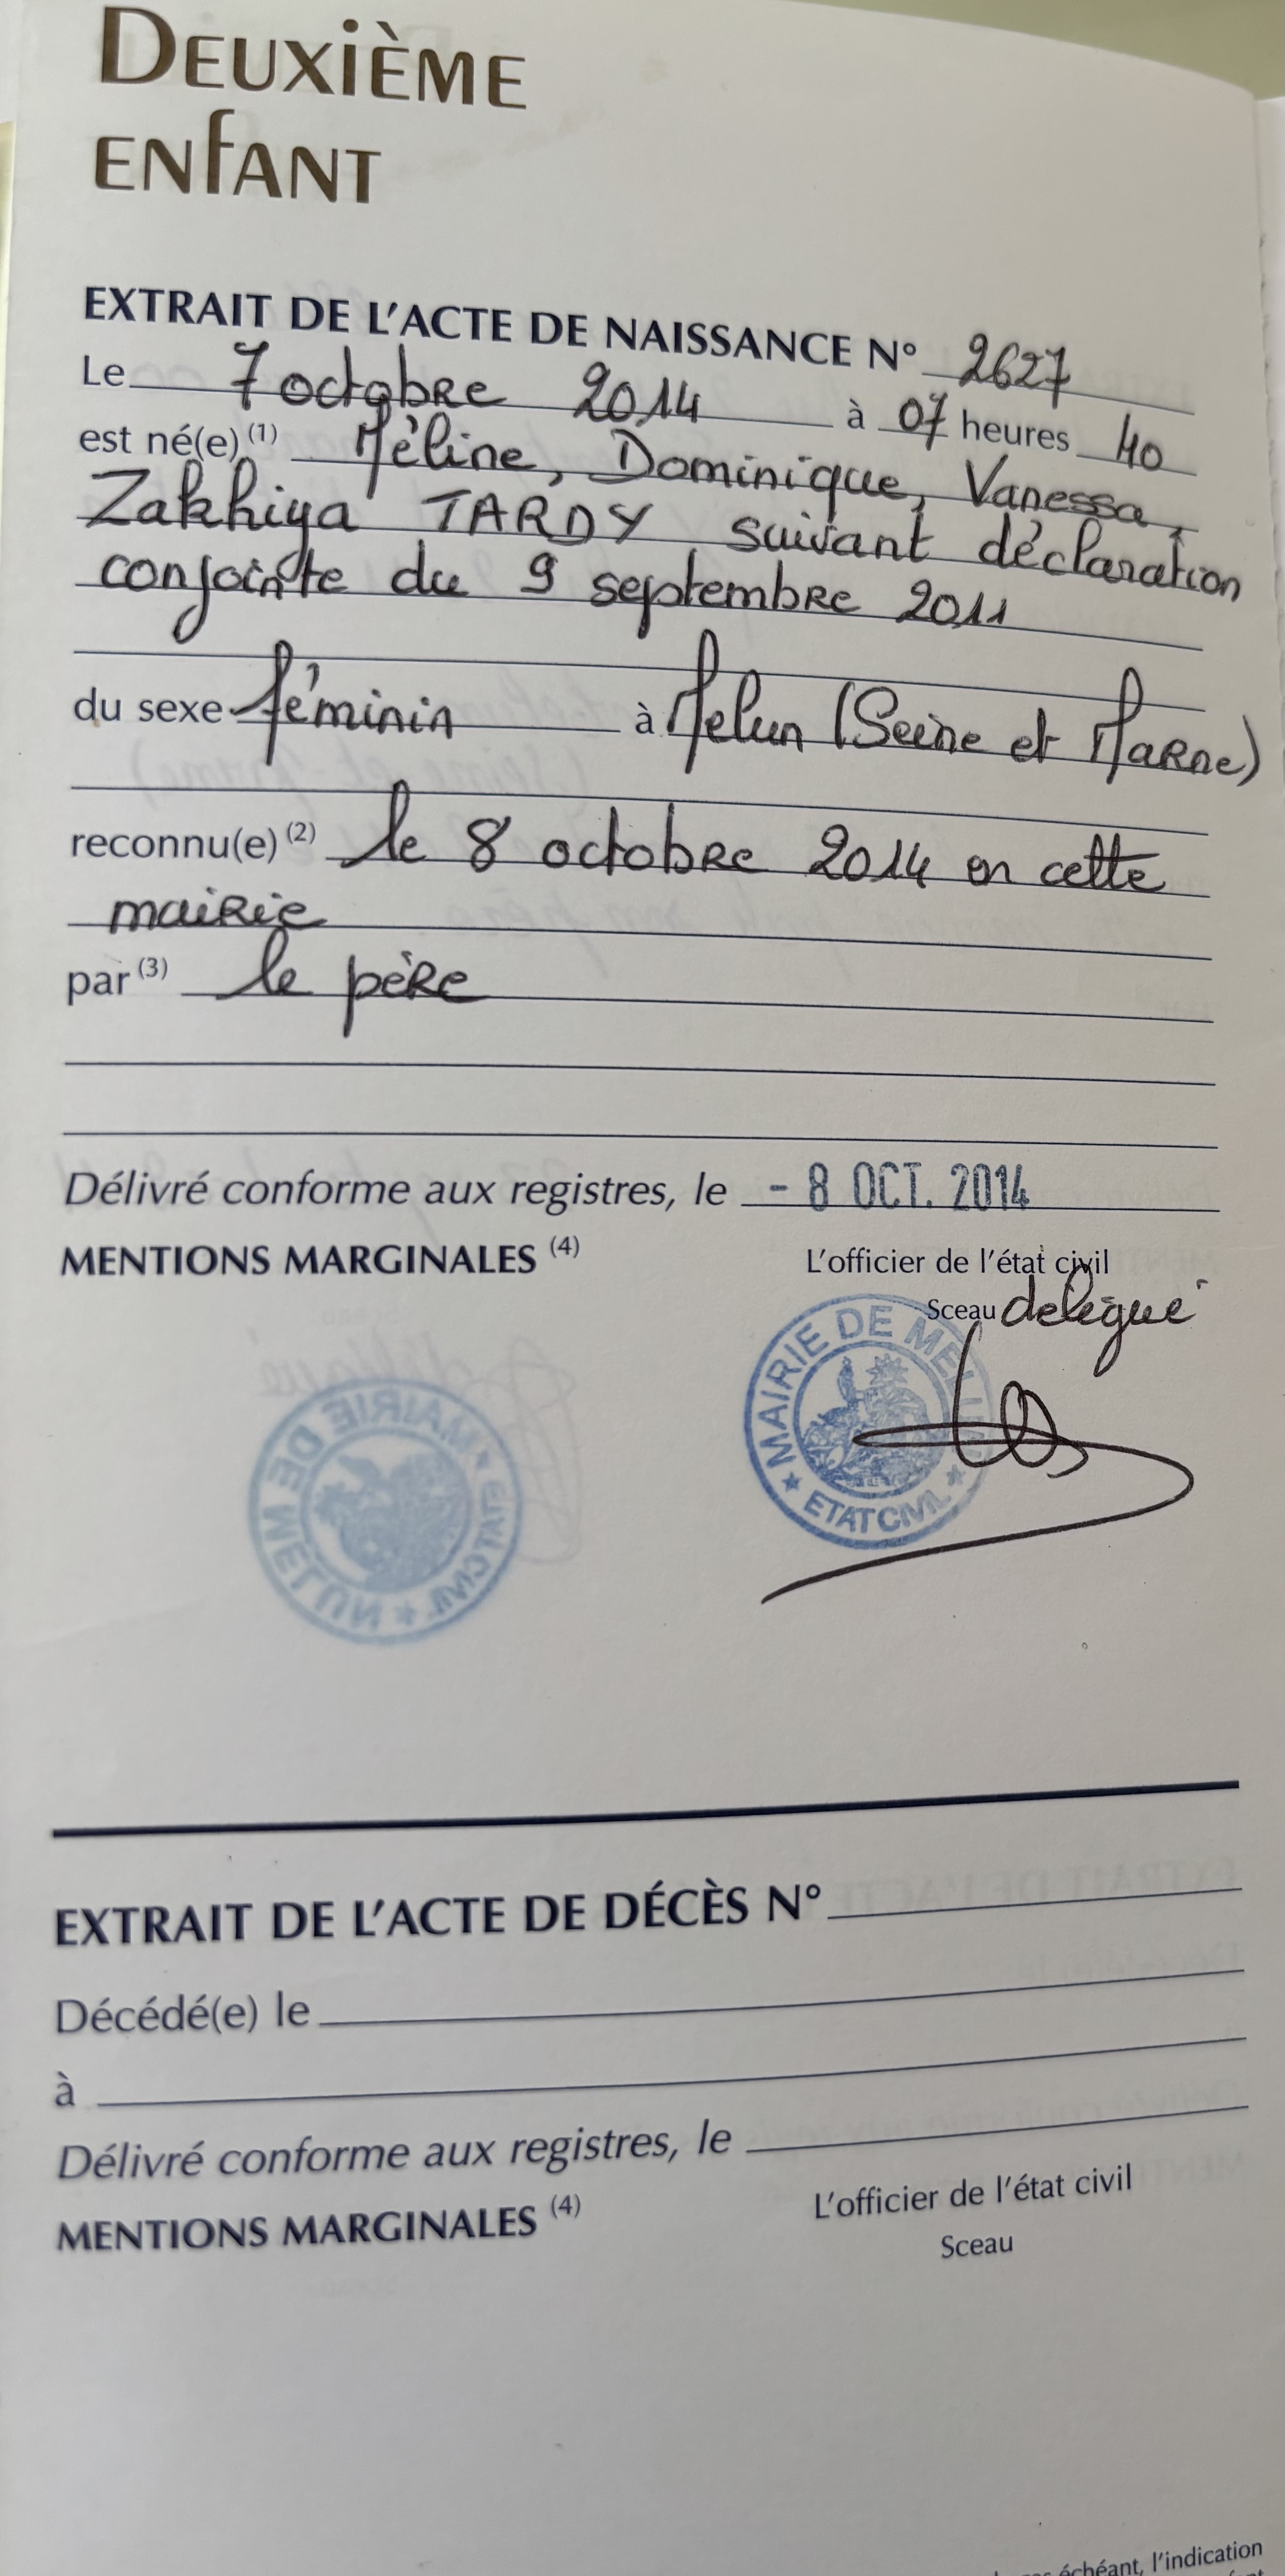 DEUXIÈME
ENFANT
EXTRAIT DE L'ACTE DE NAISSANCE N° 2627
Le 7 octobre 2014 à 07 heures 40
est né(e) (1) Méline, Dominique, Vanessa,
Zakhiya TARDY suivant déclaration
conjointe du 9 septembre 2011
du sexe féminin à Melun (Seine et Marne)
reconnu(e) (2) le 8 octobre 2014 en cette
mairie
par (3) le père
Délivré conforme aux registres, le - 8 OCT. 2014
MENTIONS MARGINALES (4)
L'officier de l'état civil
Sceau délégué
MAIRIE DE MELUN
★ ETAT CIVIL ★
EXTRAIT DE L'ACTE DE DÉCÈS N°
Décédé(e) le
à
Délivré conforme aux registres, le
MENTIONS MARGINALES (4)
L'officier de l'état civil
Sceau
échéant, l'indication